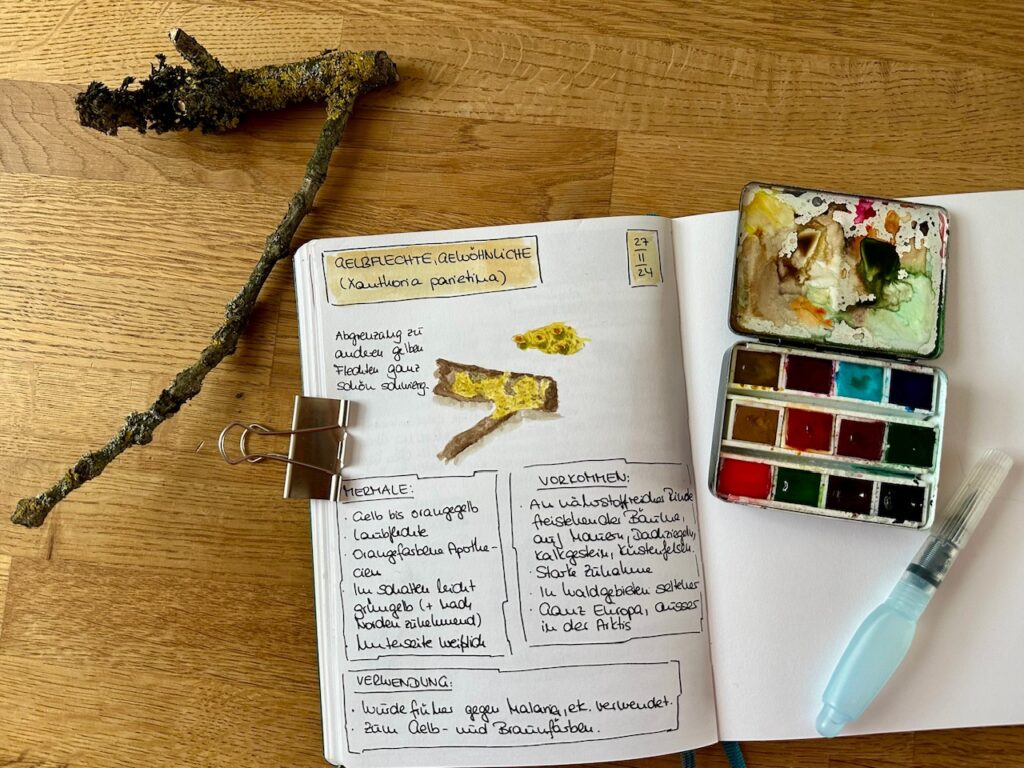 GELBFLECHTE, GEWÖHNLICHE
(Xanthoria parietina)
27
11
24
Abgrenzung zu
anderen gelben
Flechten ganz
schön schwierig.
MERMALE:
· Gelb bis orangegelb
· Laubflechte
· Orangefarbene Apothe-
cien
· Im Schatten leicht
grüngelb (+ nach
Norden zunehmend)
· Unterseite weißlich
VORKOMMEN:
· An nährstoffreicher Rinde
freistehender Bäume,
auf Mauern, Dachziegeln,
Kalkgestein, Küstenfelsen.
· Starke Zunahme
· In Waldgebieten seltener
· Ganz Europa, ausser
in der Arktis
VERWENDUNG:
· Wurde früher gegen Malaria, etc. verwendet.
· Zum Gelb- und Braunfärben.